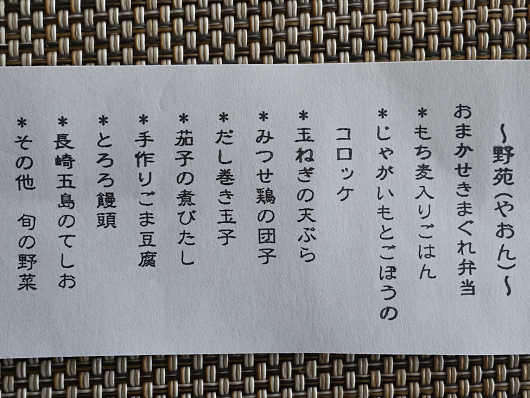 ～野苑(やおん)～
おまかせきまぐれ弁当
＊もち麦入りごはん
＊じゃがいもとごぼうの
コロッケ
＊玉ねぎの天ぷら
＊みつせ鶏の団子
＊だし巻き玉子
＊茄子の煮びたし
＊手作りごま豆腐
＊とろろ饅頭
＊長崎五島のてしお
＊その他　旬の野菜